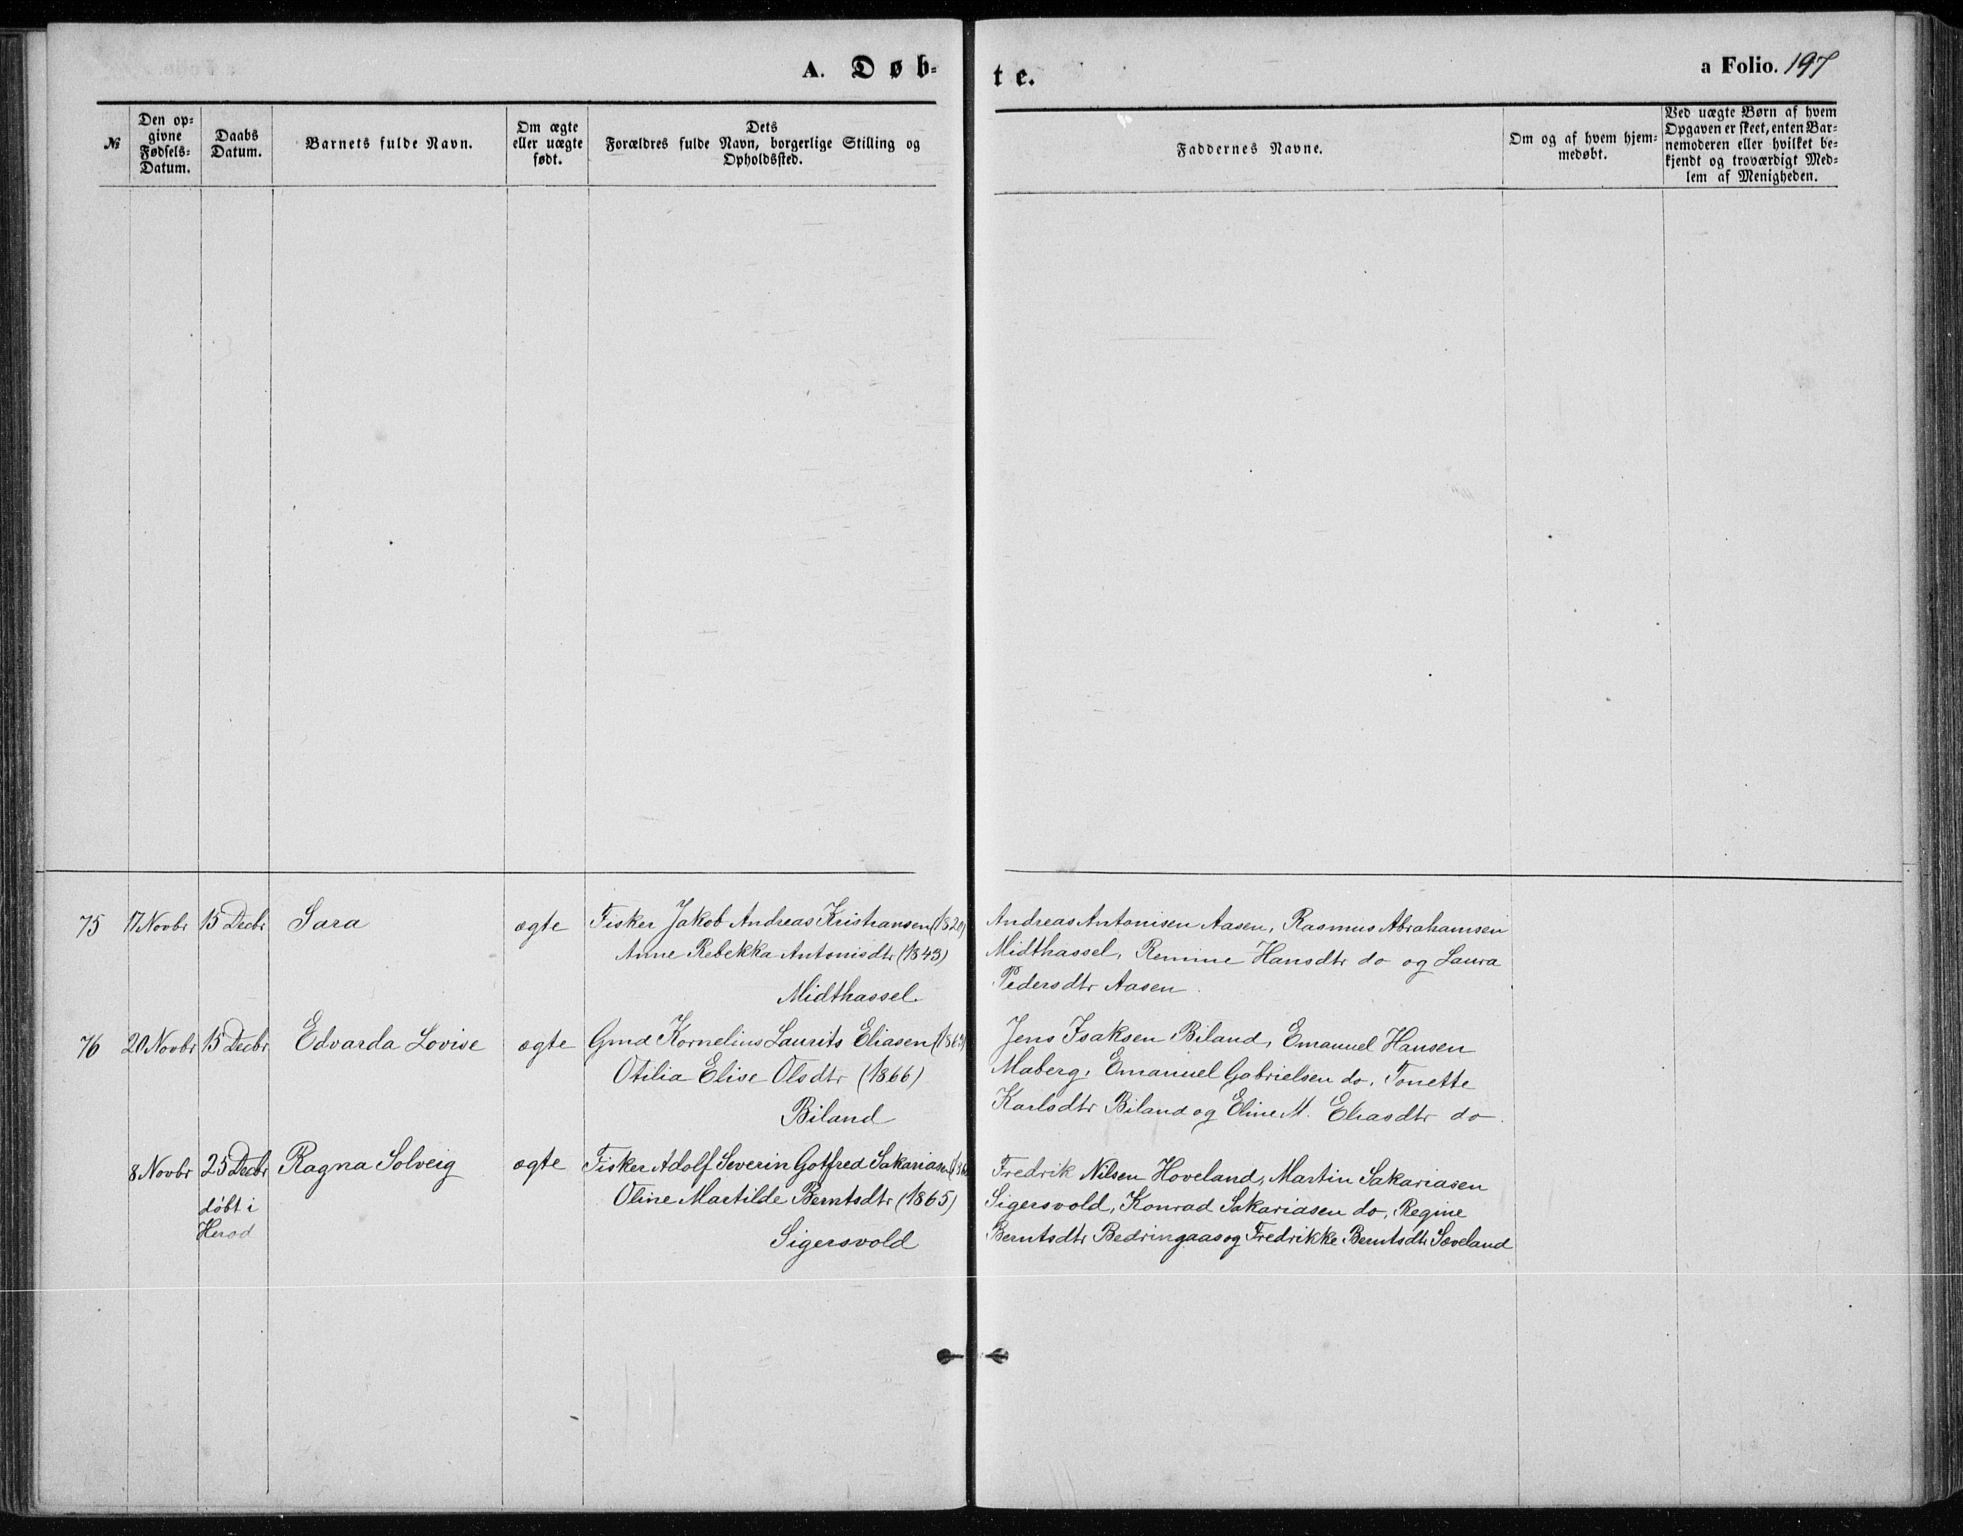 A. Døb-
te.
a Folio. 197
№
Den op-
givne
Fødsels-
Datum.
Daabs
Datum.
Barnets fulde Navn.
Om ægte
eller uægte
født.
Dets
Forældres fulde Navn, borgerlige Stilling og
Opholdssted.
Faddernes Navne.
Om og af hvem hjem-
medøbt.
Ved uægte Børn af hvem
Opgaven er skeet, enten Bar-
nemoderen eller hvilket be-
kjendt og troværdigt Med-
lem af Menigheden.
75 17 Novbr 15 Decbr Sara ægte Fisker Jakob Andreas Kristiansen
Anne Rebekka Antonisdtr (1843)
Midthassel.
Andreas Antonisen Aasen, Rasmus Abrahamsen
Midthassel, Remine Hansdtr do og Laura
Pedersdtr Aasen.
76 20 Novbr 15 Decbr Edvarda Lovise ægte Gmd Kornelius Laurits Eliasen
Otilia Elise Olsdtr (1866)
Biland
Jens Isaksen Biland, Emanuel Hansen
Maberg, Emanuel Gabrielsen do, Tonette
Karlsdtr Biland og Eline M. Eliasdtr do.
8 Novbr 25 Decbr Ragna Solveig ægte Fisker Adolf Severin Gotfred Sakariasen
døbt i
Herod
Oline Martilde Berntsdtr (1865)
Sigersvold
Fredrik Nilsen Hoveland, Martin Sakariasen
Sigersvold, Konrad Sakariasen do, Regine
Berntsdtr Bedringaas og Fredrikke Berntsdtr Sæveland